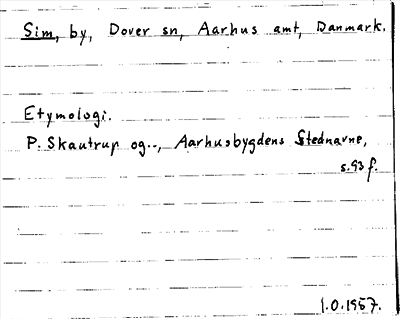 Sim, by, Dover sn, Aarhus amt, Danmark.
Etymologi.
P. Skautrup og.., Aarhusbygdens Stednavne,
s. 93 f.
I.O. 1957.